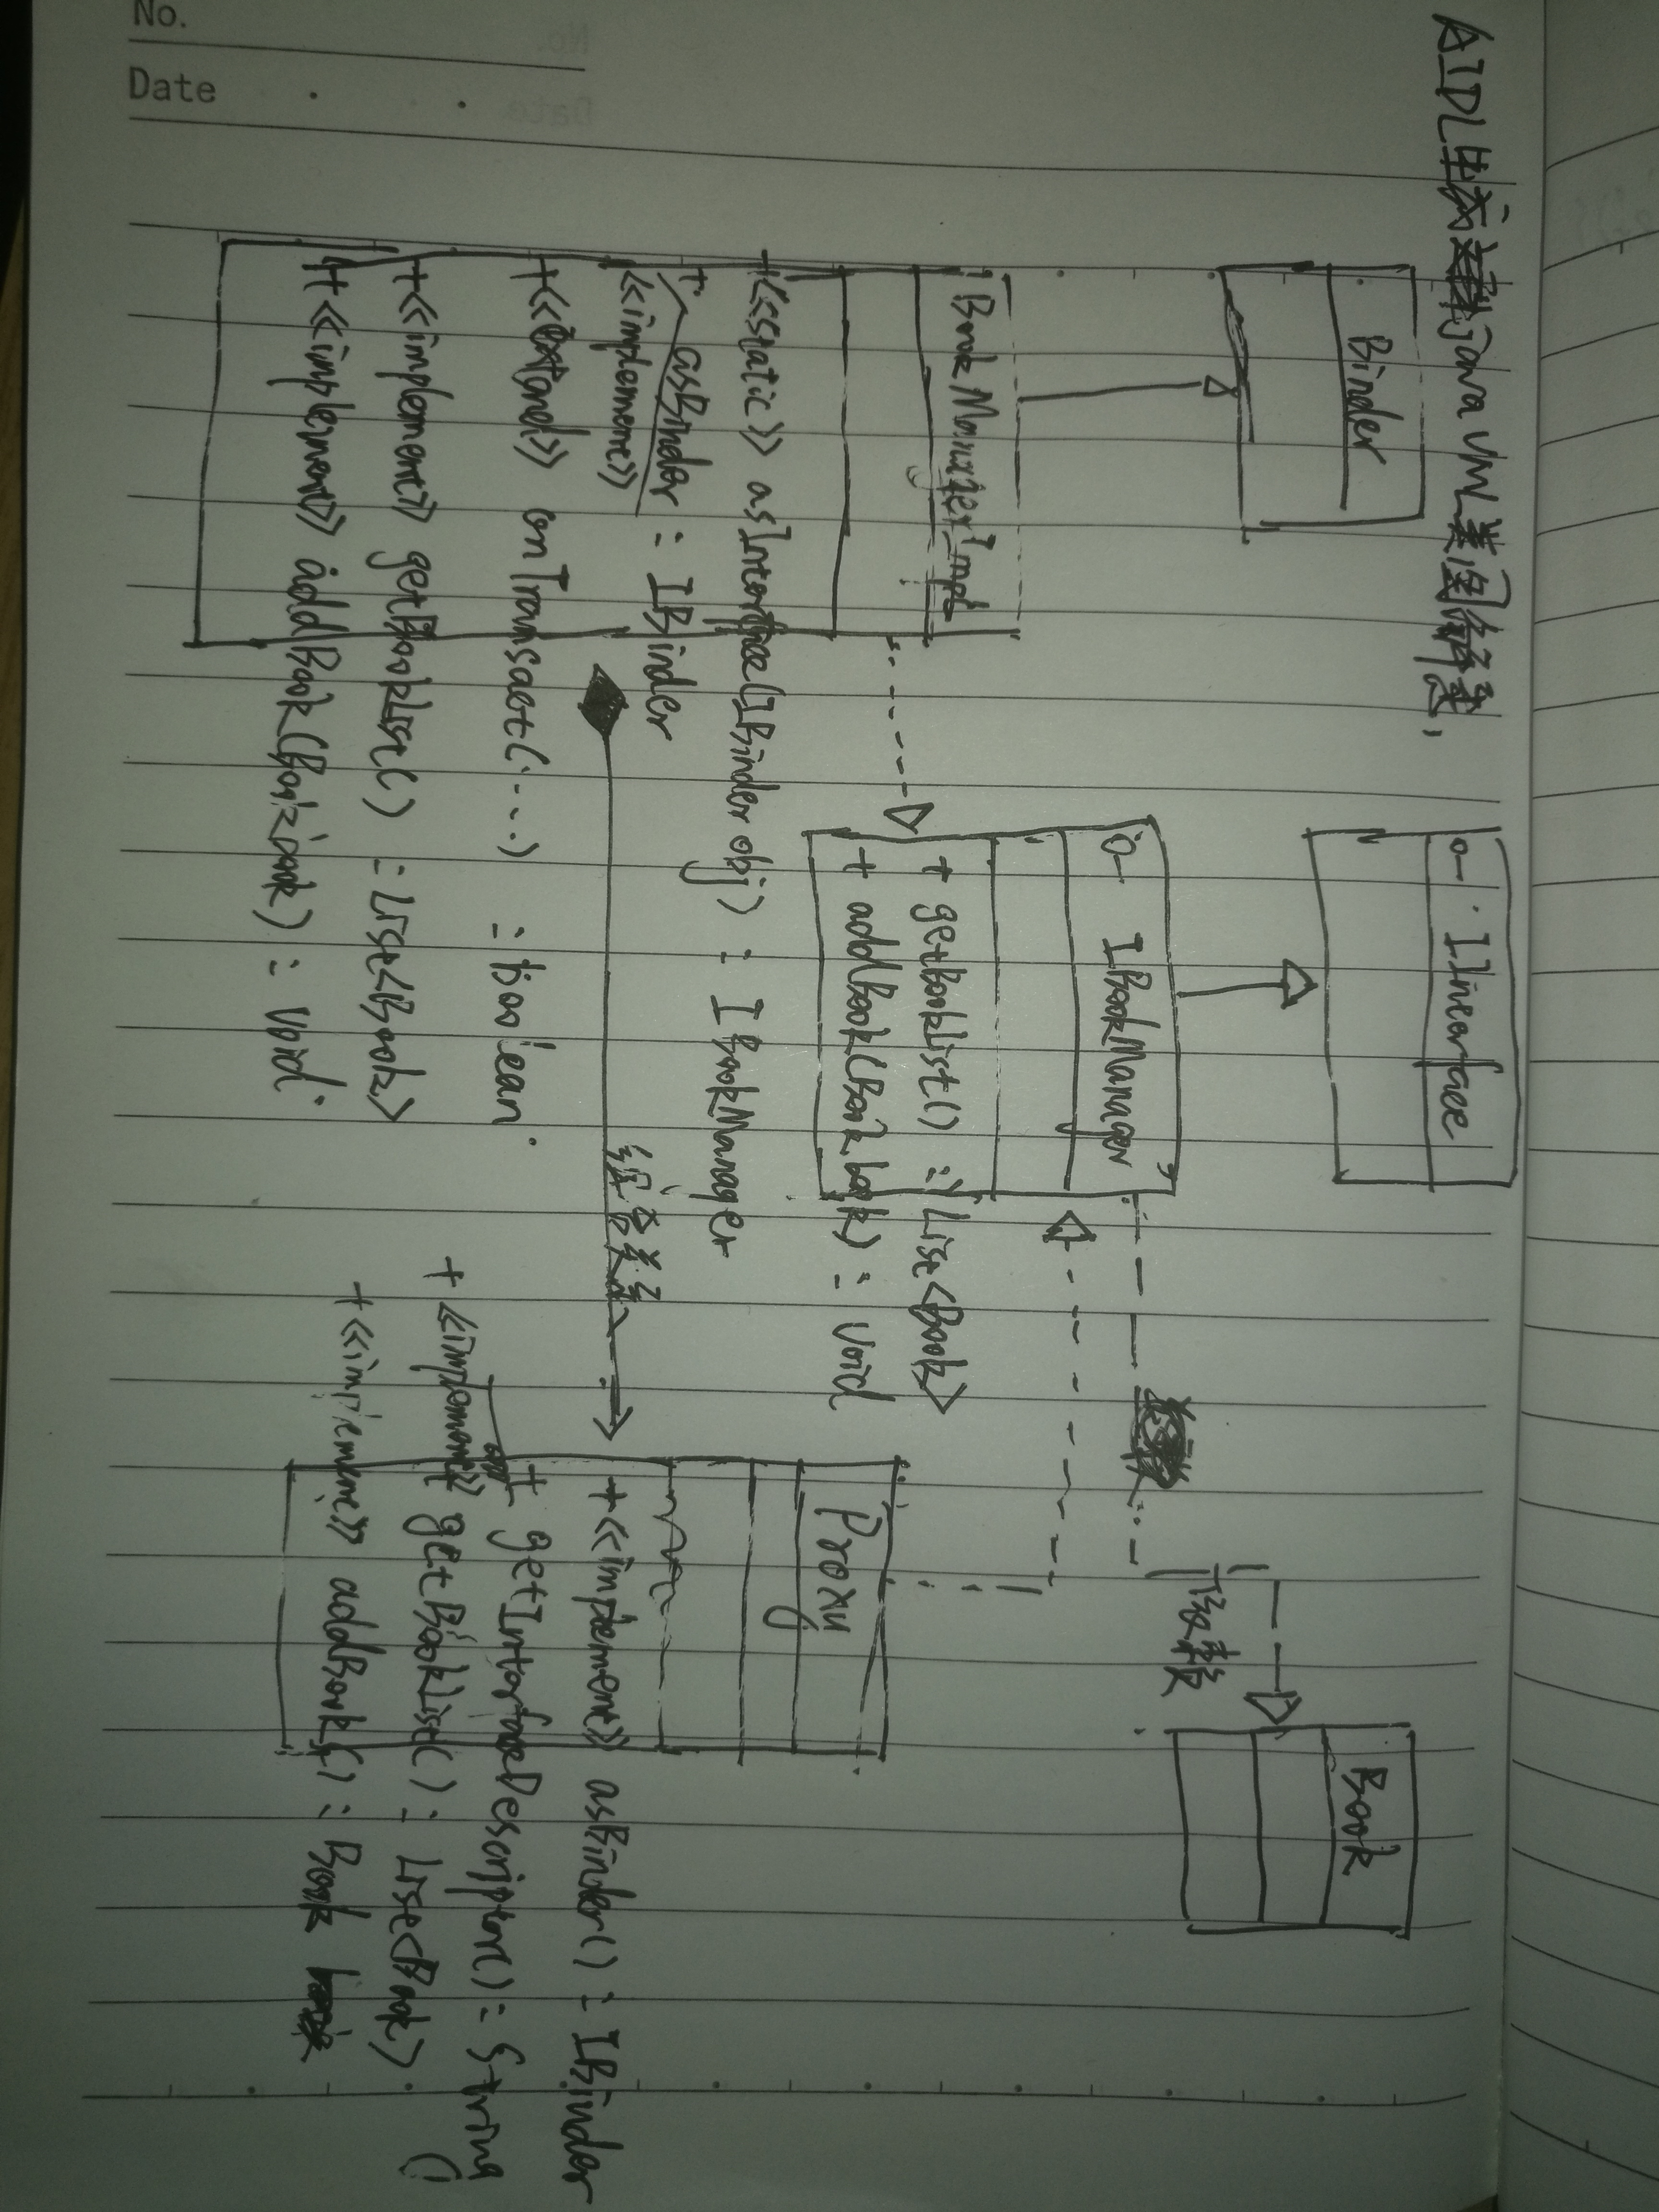 No.
Date
AIDL生成的Java UML类图
Binder
IInterface
Book
BookManagerImpl
IBookManager
依赖
+ getBookList() : List<Book>
+ addBook(Book book) : void
Proxy
+<<static>> asInterface(IBinder obj) : IBookManager
+ asBinder : IBinder
<<implement>>
+<<extend>> onTransact(...) : boolean
+<<implement>> getBookList() : List<Book>
+<<implement>> addBook(Book book) : void
组合关系
+<<implement>> asBinder() : IBinder
+ getInterfaceDescriptor() : String
+<<implement>> getBookList() : List<Book>
+<<implement>> addBook() : Book